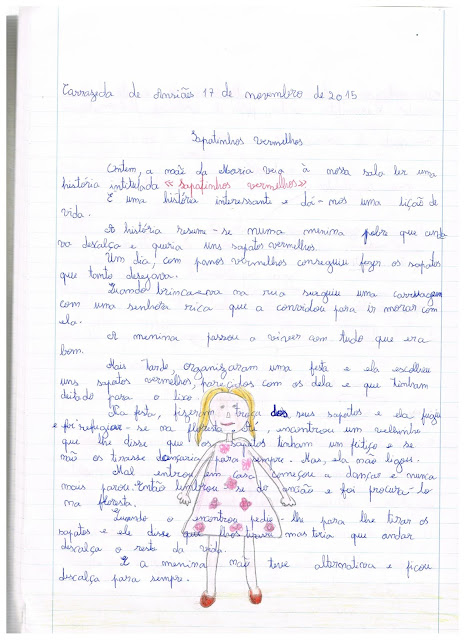 Carrazeda de Ansiães 17 de novembro de 2015
Sapatinhos vermelhos
Ontem, a mãe da Maria veio à nossa sala ler uma
história intitulada «Sapatinhos vermelhos»
É uma história interessante e dá-nos uma lição de
vida.
A história resume-se numa menina pobre que anda
va descalça e queria uns sapatos vermelhos.
Um dia, com panos vermelhos conseguiu fazer os sapatos
que tanto desejava.
Quando brincava na rua surgiu uma carruagem
com uma senhora rica que a convidou para ir morar com
ela.
A menina passou a viver com tudo que era
bom.
Mais tarde, organizaram uma festa e ela escolheu
uns sapatos vermelhos, parecidos com os dela e que tinham
deitado para o lixo.
Na festa, fizeram troça dos seus sapatos e ela fugiu
e foi refugiar-se na floresta. Aí, encontrou um velhinho
que lhe disse que os sapatos tinham um feitiço e se
não os tirasse dançaria para sempre. Mas, ela não ligou.
Mal entrou em casa começou a dançar e nunca
mais parou. Então lembrou-se do ancião e foi procurá-lo
na floresta.
Quando o encontrou pediu-lhe para lhe tirar os
sapatos e ele disse que lhos tirava mas teria que andar
descalça o resto da vida.
E a menina não teve alternativa e ficou
descalça para sempre.